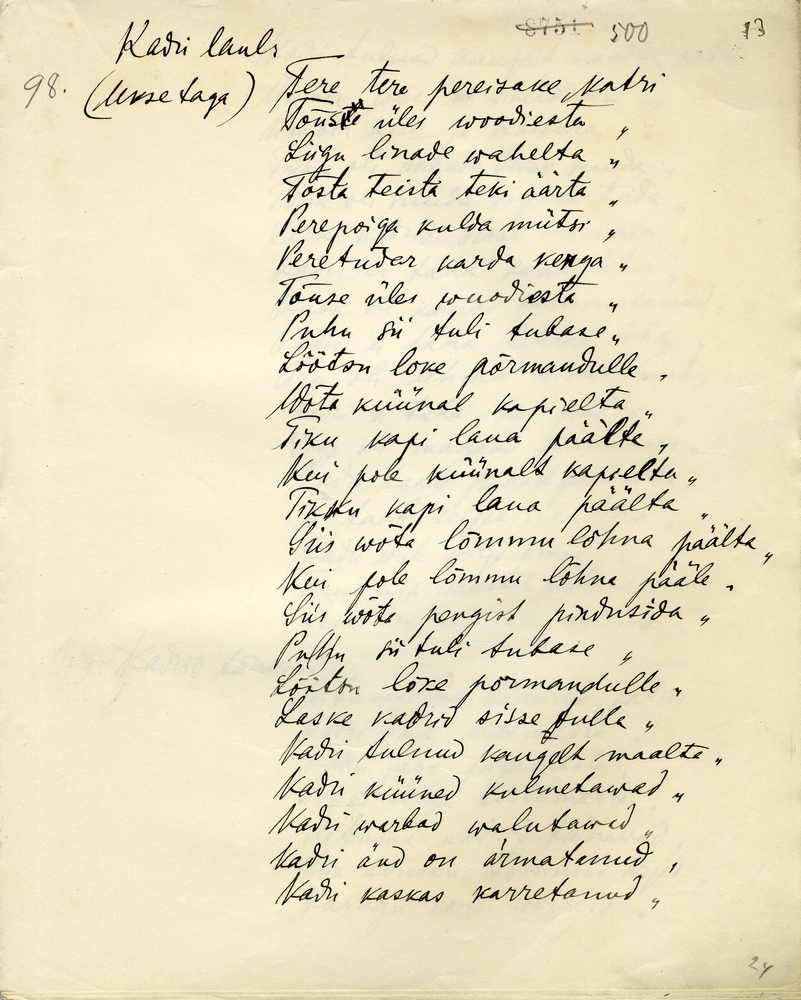 8751 500 13
Kadri laul
98. (Ukse taga) Tere tere pereisake, Katri
Tõuse üles woodiesta „
Liigu linade wahelta „
Tõsta teista teki äärta „
Perepoiga kulda mütsi „
Peretudar karda kenga „
Tõuse üles wuodiesta „
Puhu sii tuli tubase „
Lõõtsu lõke põrmandulle „
Wõta küünal kapielta „
Tiku kapi laua päälta „
Kui pole küünalt kapielta „
Tikku kapi laua päälta „
Siis wõta lõmmu lõhna päälta „
Kui pole lõmmu lõhna pääle „
Siis wõta pengist pindusida „
Puhhu sii tuli tubase „
Lõõtsu lõke põrmandulle „
Laske kadrid sisse tulla „
Kadri tulnud kaugelt maalta „
Kadri küüned külmetawad „
Kadri warbad walutawad „
Kadri änd on ärmatanud „
Kadri kaskas karretanud „
24